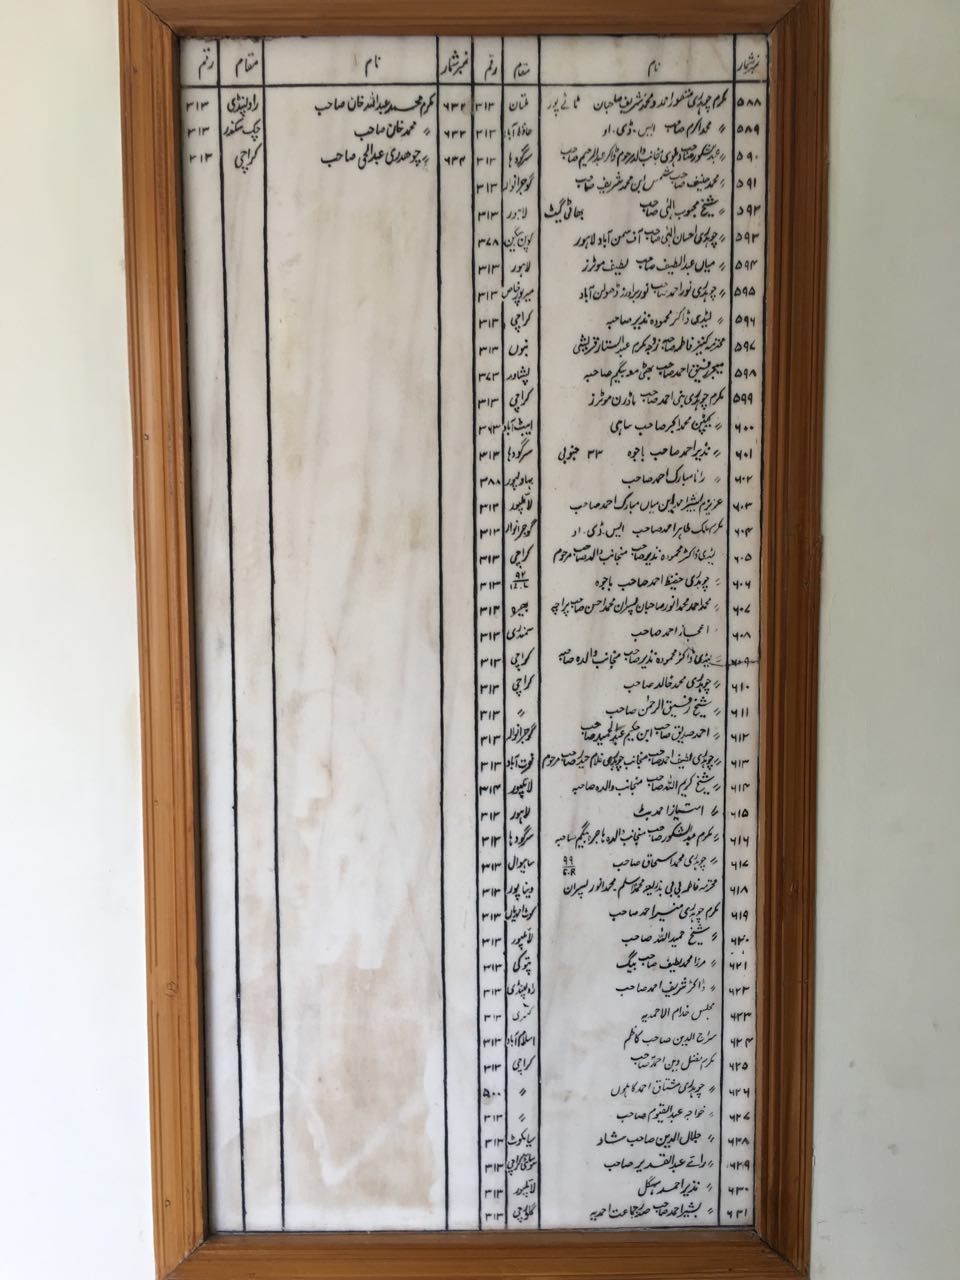 نمبرشمار نام مقام رقم نمبرشمار نام مقام رقم
۵۸۸ مکرم چوہدری منظور احمد و محمد شریف صاحبان ملتان ۳۱۳
۵۸۹ 〃 محمد اکرم صاحب ایس۔ڈی۔او حافظ آباد ۳۱۳
۵۹۰ سرگودہا ۳۱۳
۵۹۱ 〃 محمد حنیف صاحب شمس ابن محمد شریف صاحب گوجرانوالہ ۳۱۳
۵۹۲ 〃 شیخ محبوب الٰہی صاحب بھاٹی گیٹ لاہور ۳۱۳
۵۹۳ 〃 چوہدری احسان الٰہی صاحب آف سمن آباد لاہور ۳۷۸
۵۹۴ 〃 میاں عبداللطیف صاحب لطیف موٹرز لاہور ۳۱۳
۵۹۵ 〃 چوہدری نور احمد صاحب نور برادرز ڈھولن آباد میرپورخاص ۳۱۳
۵۹۶ 〃 لیڈی ڈاکٹر محمودہ نذیر صاحبہ کراچی ۳۱۳
۵۹۷ محترمہ کنیز فاطمہ صاحبہ زوجہ مکرم عبدالستار قریشی بنوں ۳۱۳
۵۹۸ میجر رفیق احمد صاحب بھٹی معہ بیگم صاحبہ پشاور ۳۷۳
۵۹۹ مکرم چوہدری بنی احمد صاحب ماڈرن موٹرز کراچی ۳۱۳
۶۰۰ 〃 کیپٹن محمد اکبر صاحب ساہی ایبٹ آباد ۳۶۳
۶۰۱ 〃 نذیر احمد صاحب باجوہ ۳۳ جنوبی سرگودہا ۳۱۳
۶۰۲ 〃 رانا مبارک احمد صاحب بہاولپور ۳۸۸
۶۰۳ عزیزم بشیر احمد ابن میاں مبارک احمد صاحب لائلپور ۳۱۳
۶۰۴ مکرم ملک طاہر احمد صاحب ایس۔ڈی۔او گوجرانوالہ ۳۱۳
۶۰۵ لیڈی ڈاکٹر محمودہ نذیر صاحبہ منجانب والد صاحب مرحوم کراچی ۳۱۳
۶۰۶ 〃 چوہدری حفیظ احمد صاحب باجوہ ۳۱۳
۶۰۷ 〃 محمد احمد محمد انور صاحبان پسران محمد احسن صاحب پراچہ بھیرہ ۳۱۳
۶۰۸ اعجاز احمد صاحب سمندری ۳۱۳
۶۰۹ لیڈی ڈاکٹر محمودہ نذیر صاحبہ منجانب والدہ صاحبہ کراچی ۳۱۳
۶۱۰ 〃 چوہدری محمد خالد صاحب کراچی ۳۱۳
۶۱۱ 〃 شیخ رفیق الرحمٰن صاحب 〃 ۳۱۳
۶۱۲ 〃 احمد صدیق صاحب ابن حکیم عبدالحمید صاحب گوجرانوالہ ۳۱۳
۶۱۳ 〃 چوہدری لطیف احمد صاحب منجانب چوہدری غلام حیدر صاحب مرحوم ۳۱۳
۶۱۴ 〃 شیخ کریم اللہ صاحب منجانب والدہ صاحبہ لائلپور ۳۱۴
۶۱۵ 〃 امتیاز احمد بٹ لاہور ۳۱۳
۶۱۶ 〃 مکرم عبدالشکور صاحب منجانب والدہ ہاجرہ بیگم صاحبہ سرگودہا ۳۱۳
۶۱۷ 〃 چوہدری محمد اسحاق صاحب ۹۹/6.R ساہیوال ۳۱۳
۶۱۸ محترمہ فاطمہ بی بی بذریعہ محمد اسلم۔محمد انور پسران دینا پور ۳۱۳
۶۱۹ مکرم چوہدری منیر احمد صاحب ۳۱۳
۶۲۰ 〃 شیخ حمید اللہ صاحب لائلپور ۳۱۳
۶۲۱ 〃 مرزا محمد لطیف صاحب بیگ پتوکی ۳۱۳
۶۲۲ 〃 ڈاکٹر شریف احمد صاحب راولپنڈی ۳۱۳
۶۲۳ مجلس خدام الاحمدیہ ۳۱۳
۶۲۴ سراج الدین صاحب کاظم اسلام آباد ۳۱۳
۶۲۵ مکرم فضل دین احمد صاحب کراچی ۳۱۳
۶۲۶ 〃 چوہدری مشتاق احمد کاہلوں 〃 ۵۰۰
۶۲۷ 〃 خواجہ عبدالقیوم صاحب 〃 ۳۱۳
۶۲۸ 〃 جلال الدین صاحب شاد سیالکوٹ ۳۱۳
۶۲۹ 〃 رائے عبدالقدیر صاحب ۳۱۳
۶۳۰ 〃 نذیر احمد سہگل لائلپور ۳۱۳
۶۳۱ 〃 بشیر احمد صاحب صدر جماعت احمدیہ ۳۱۳
۶۳۲ مکرم محمد عبداللہ خان صاحب راولپنڈی ۳۱۳
۶۳۳ 〃 محمد خان صاحب چک سکندر ۳۱۳
۶۳۴ 〃 چوھدری عبدالحی صاحب کراچی ۳۱۳